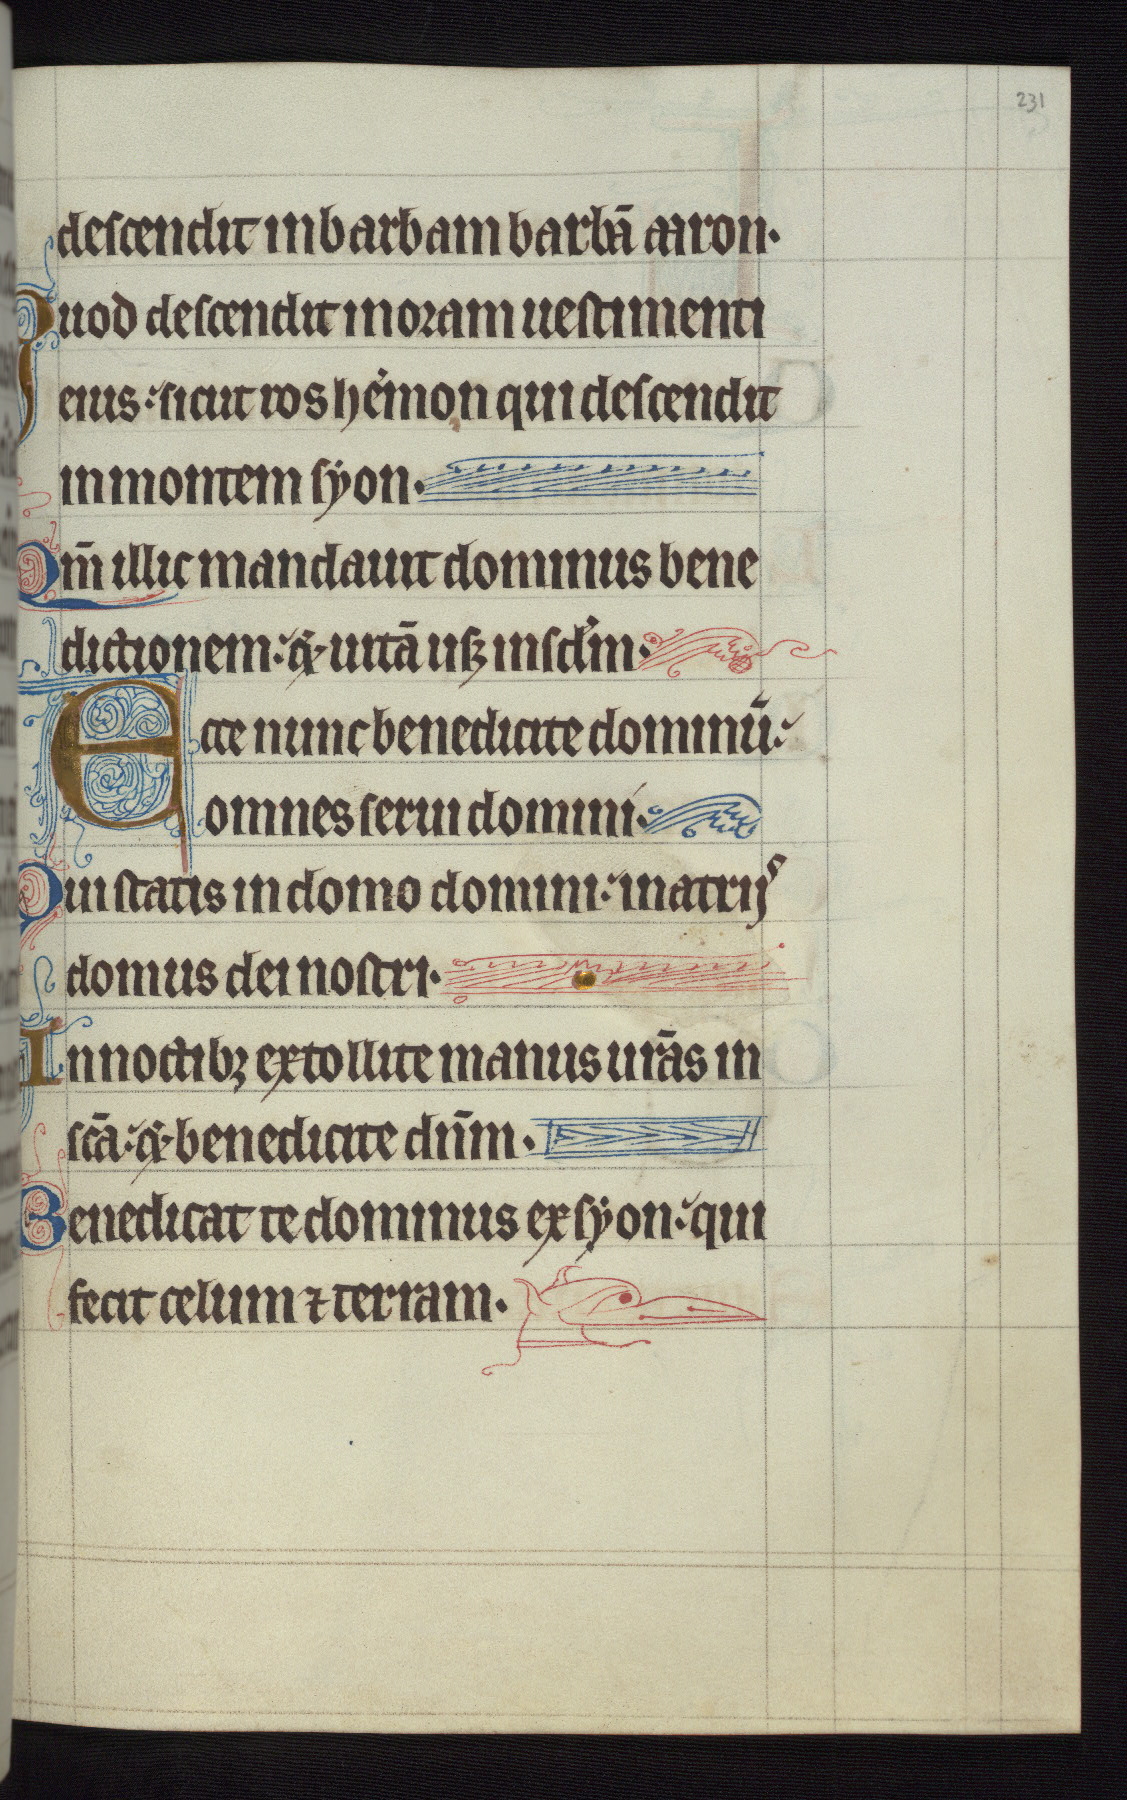 231
descendit in barbam barbā aaron.
Quod descendit in oram uestimenti
eius: sicut ros hermon qui descendit
in montem syon.
Qm̄ illic mandauit dominus bene
dictionem: & uitā usqꝫ in sclm̄.
Ecce nunc benedicite dominū:
omnes serui domini.
Qui statis in domo domini: in atrijs
domus dei nostri.
In noctibꝫ extollite manus urās in
scā: & benedicite dn̄m.
Benedicat te dominus ex syon: qui
fecit celum ⁊ terram.